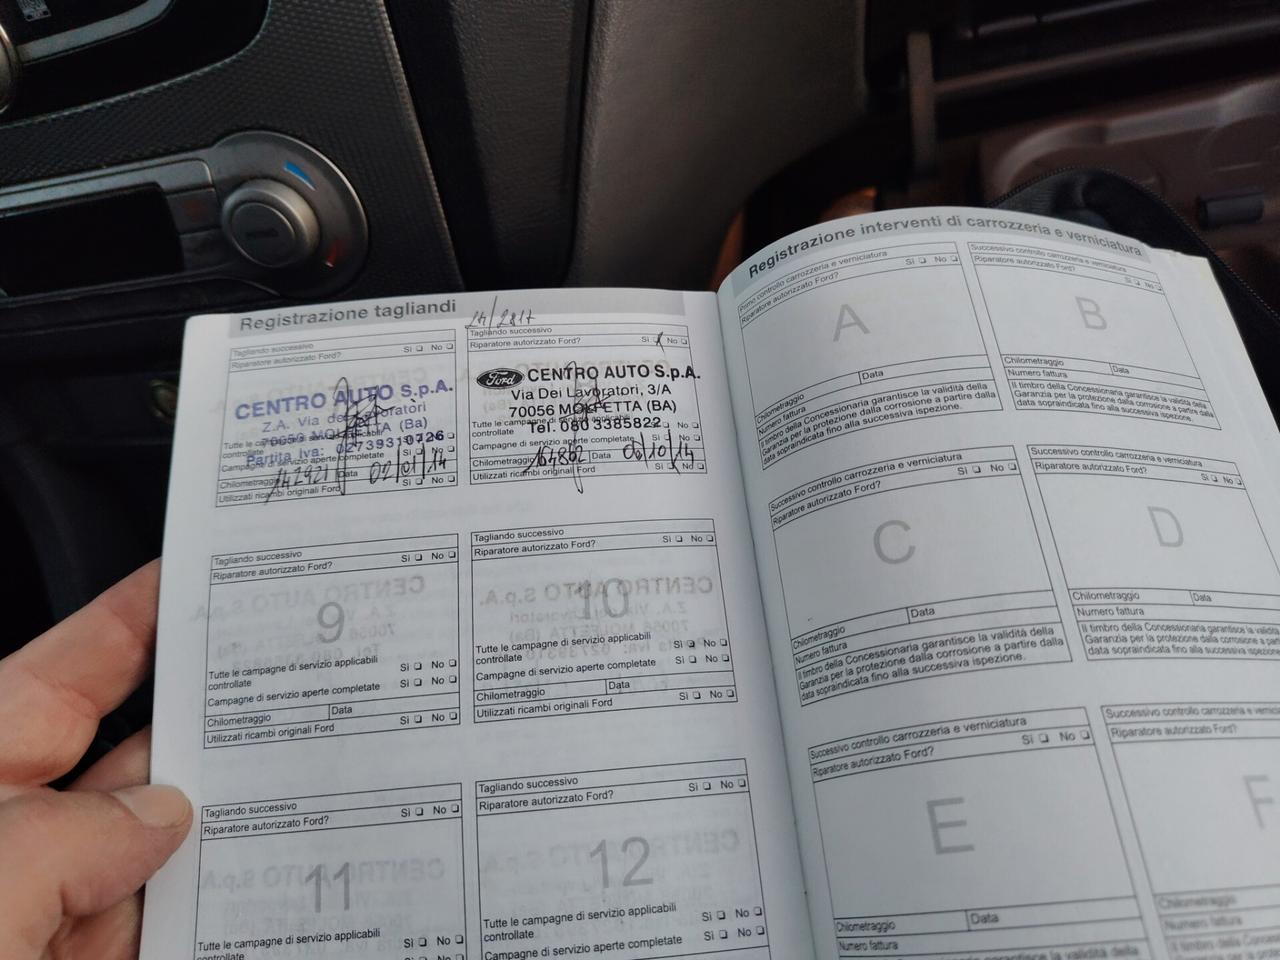 Registrazione tagliandi
Tagliando successivo
Riparatore autorizzato Ford? Sì No
CENTRO AUTO S.p.A.
Z.A. Via dei Lavoratori
70056 MOLFETTA (Ba)
Partita Iva: 02739310726
Chilometraggio 142921 Data 02/01/14
Utilizzati ricambi originali Ford Sì No
Tagliando successivo
Riparatore autorizzato Ford? Sì No
Ford CENTRO AUTO S.p.A.
Via Dei Lavoratori, 3/A
70056 MOLFETTA (BA)
Tel. 080 3385822
Tutte le campagne di servizio applicabili
controllate Sì No
Campagne di servizio aperte completate Sì No
Chilometraggio 164862 Data /10/14
Utilizzati ricambi originali Ford Sì No
Tagliando successivo
Riparatore autorizzato Ford? Sì No
9
Tutte le campagne di servizio applicabili
controllate Sì No
Campagne di servizio aperte completate Sì No
Chilometraggio Data
Utilizzati ricambi originali Ford Sì No
Tagliando successivo
Riparatore autorizzato Ford? Sì No
10
Tutte le campagne di servizio applicabili
controllate Sì No
Campagne di servizio aperte completate Sì No
Chilometraggio Data
Utilizzati ricambi originali Ford Sì No
Tagliando successivo
Riparatore autorizzato Ford? Sì No
11
Tutte le campagne di servizio applicabili
controllate Sì No
Tagliando successivo
Riparatore autorizzato Ford? Sì No
12
Tutte le campagne di servizio applicabili
controllate Sì No
Campagne di servizio aperte completate Sì No
Registrazione interventi di carrozzeria e verniciatura
Primo controllo carrozzeria e verniciatura
Riparatore autorizzato Ford? Sì No
A
Chilometraggio Data
Numero fattura
Il timbro della Concessionaria garantisce la validità della
Garanzia per la protezione dalla corrosione a partire dalla
data sopraindicata fino alla successiva ispezione.
Successivo controllo carrozzeria e verniciatura
Riparatore autorizzato Ford? Sì No
B
Chilometraggio Data
Numero fattura
Il timbro della Concessionaria garantisce la validità della
Garanzia per la protezione dalla corrosione a partire dalla
data sopraindicata fino alla successiva ispezione.
Successivo controllo carrozzeria e verniciatura
Riparatore autorizzato Ford? Sì No
C
Chilometraggio Data
Numero fattura
Il timbro della Concessionaria garantisce la validità della
Garanzia per la protezione dalla corrosione a partire dalla
data sopraindicata fino alla successiva ispezione.
Successivo controllo carrozzeria e verniciatura
Riparatore autorizzato Ford? Sì No
D
Chilometraggio Data
Numero fattura
Il timbro della Concessionaria garantisce la validità
Garanzia per la protezione dalla corrosione a partire
data sopraindicata fino alla successiva ispezione
Successivo controllo carrozzeria e verniciatura
Riparatore autorizzato Ford? Sì No
E
Chilometraggio Data
Numero fattura
Il timbro della Concessionaria garantisce la validità della
Successivo controllo carrozzeria e
Riparatore autorizzato Ford?
F
Chilometraggio
Numero fattura
Il timbro della Concessionaria